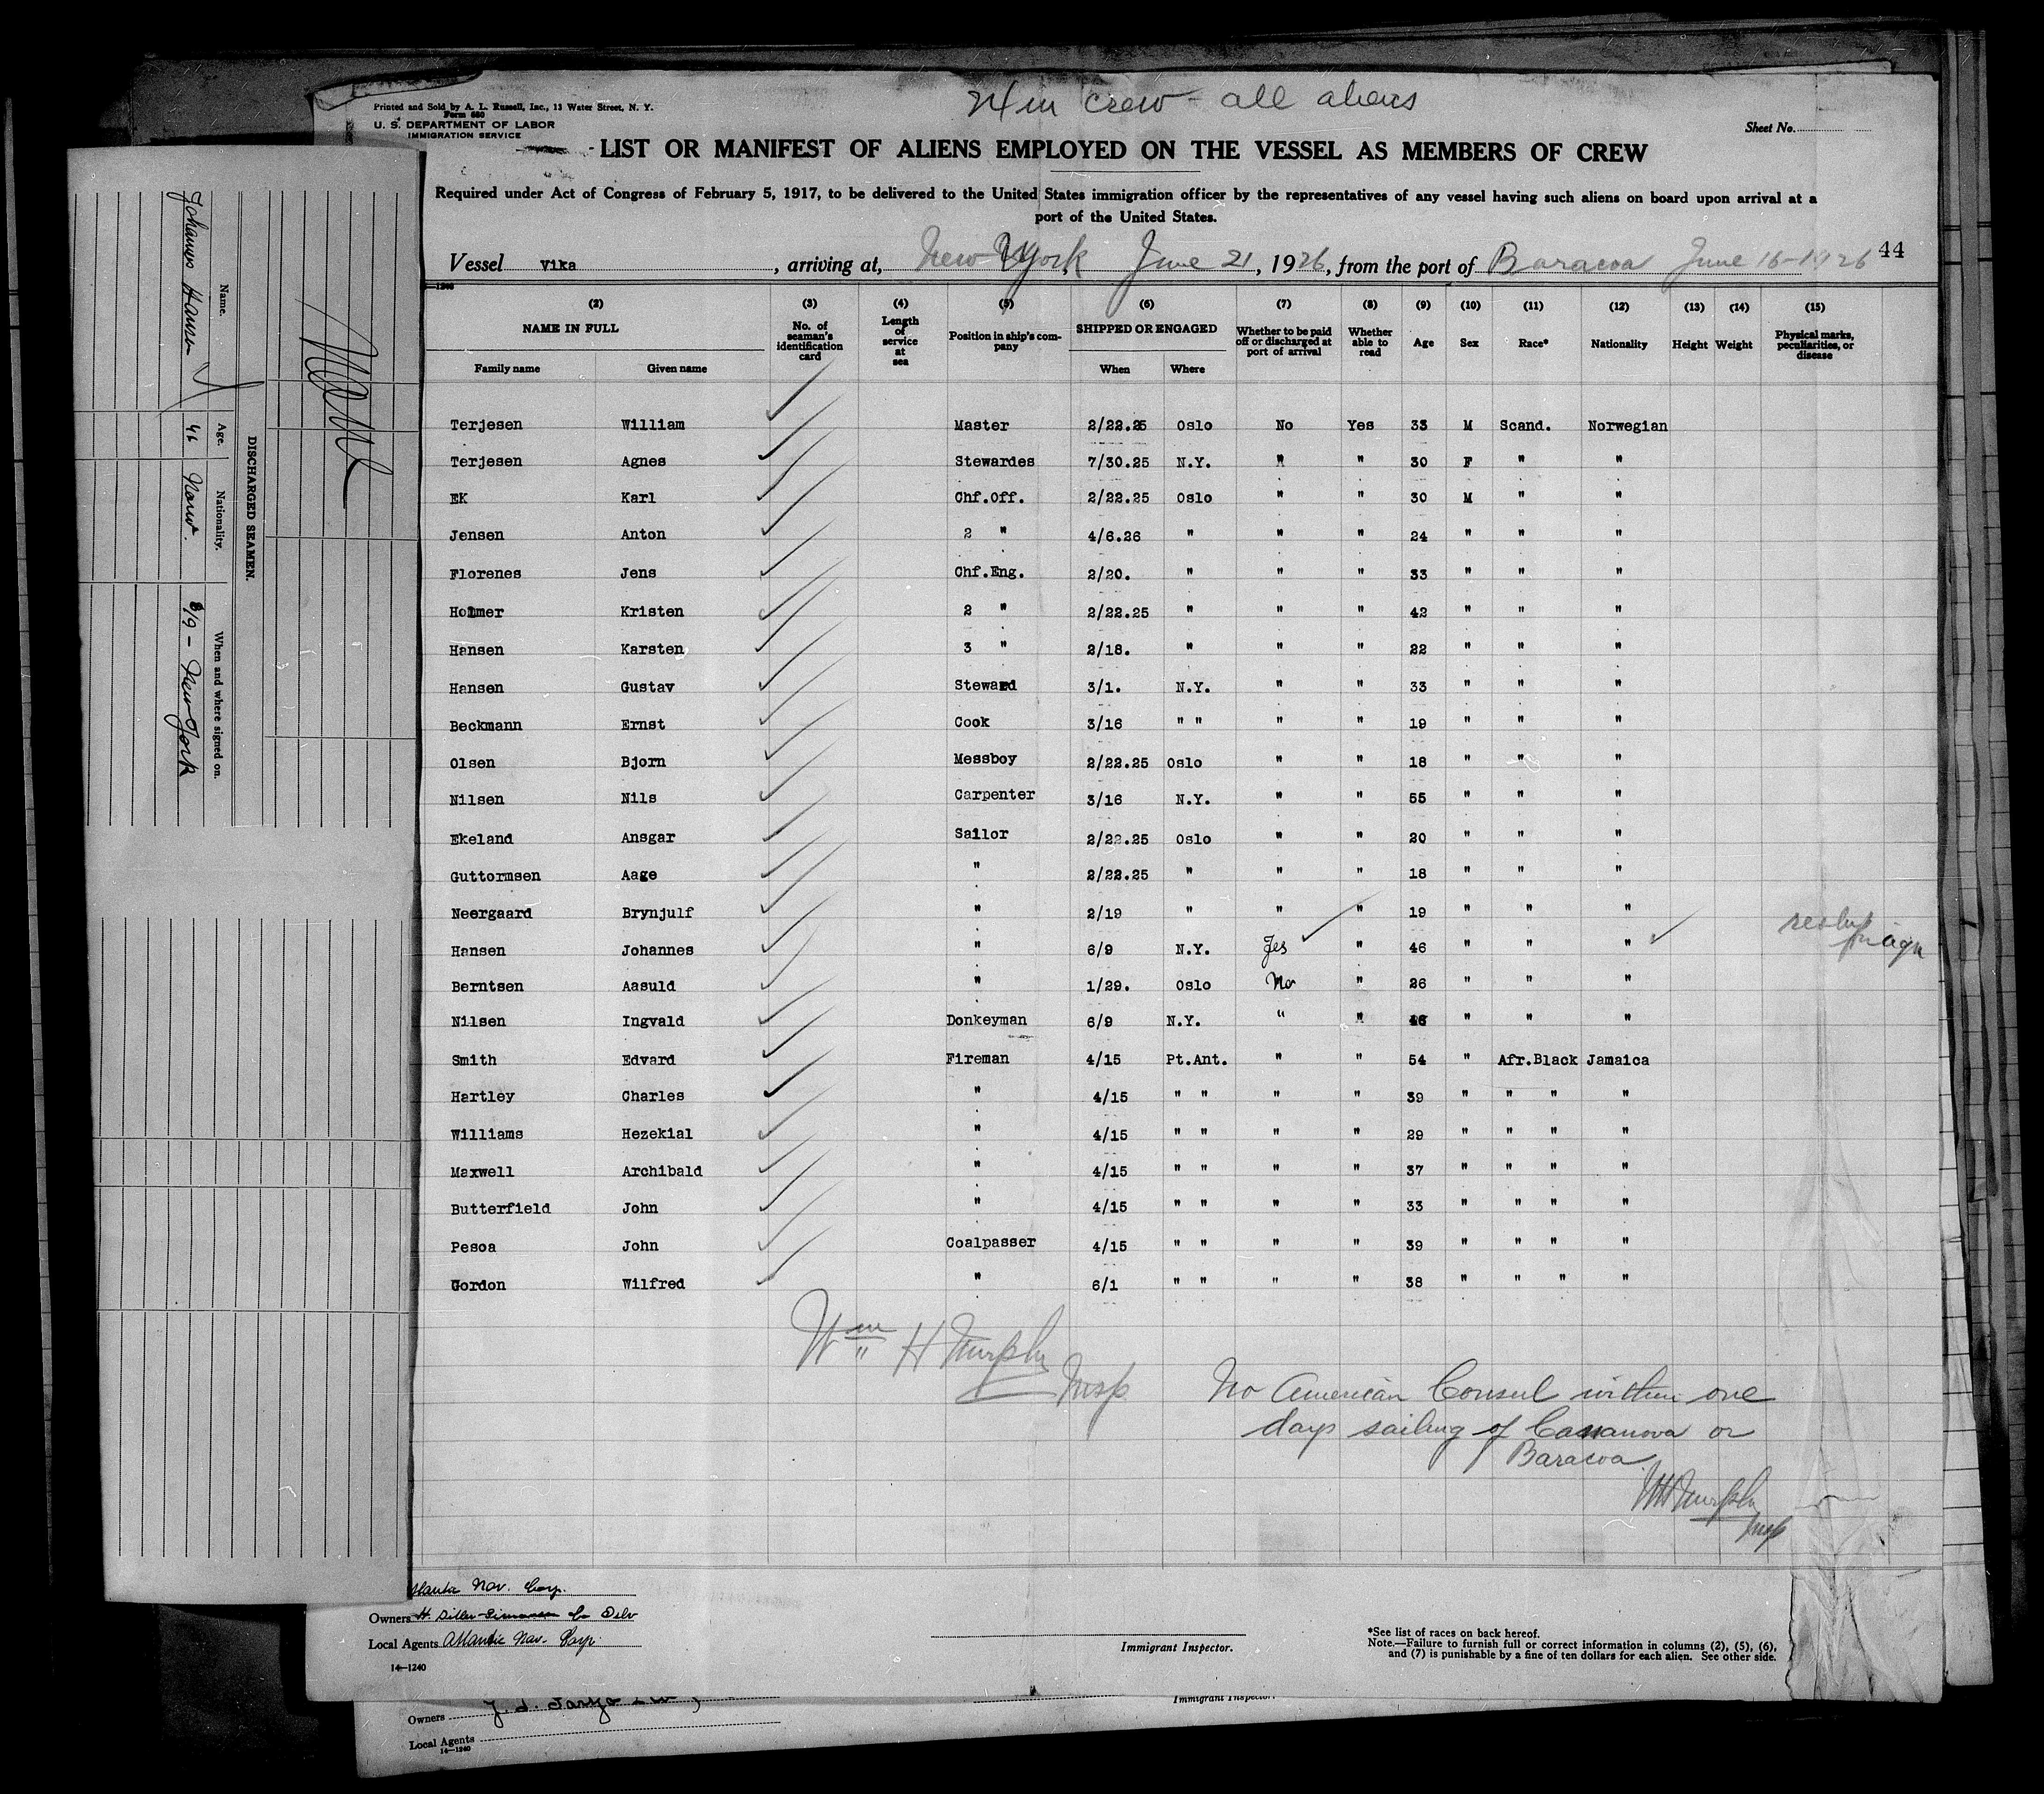 24 in crew - all aliens
Printed and Sold by A. L. Russell, Inc., 13 Water Street, N. Y.
Form 680
U. S. DEPARTMENT OF LABOR
IMMIGRATION SERVICE
Sheet No.
LIST OR MANIFEST OF ALIENS EMPLOYED ON THE VESSEL AS MEMBERS OF CREW
Required under Act of Congress of February 5, 1917, to be delivered to the United States immigration officer by the representatives of any vessel having such aliens on board upon arrival at a
port of the United States.
Vessel Vika, arriving at, New York June 21, 1926, from the port of Baracoa June 16-1926 44
(2) (3) (4) (5) (6) (7) (8) (9) (10) (11) (12) (13) (14) (15)
NAME IN FULL No. of seaman's identification card Length of service at sea Position in ship's company SHIPPED OR ENGAGED Whether to be paid off or discharged at port of arrival Whether able to read Age Sex Race* Nationality Height Weight Physical marks, peculiarities, or disease
Family name Given name When Where
Terjesen William Master 2/22.25 Oslo No Yes 33 M Scand. Norwegian
Terjesen Agnes Stewardes 7/30.25 N.Y. " " 30 F " "
EK Karl Chf.Off. 2/22.25 Oslo " " 30 M " "
Jensen Anton 2 " 4/6.26 " " " 24 " " "
Florenes Jens Chf.Eng. 2/20. " " " 33 " " "
Holmer Kristen 2 " 2/22.25 " " " 42 " " "
Hansen Karsten 3 " 2/18. " " " 22 " " "
Hansen Gustav Steward 3/1. N.Y. " " 33 " " "
Beckmann Ernst Cook 3/16 " " " " 19 " " "
Olsen Bjorn Messboy 2/22.25 Oslo " " 18 " " "
Nilsen Nils Carpenter 3/16 N.Y. " " 55 " " "
Ekeland Ansgar Sailor 2/22.25 Oslo " " 20 " " "
Guttormsen Aage " 2/22.25 " " " 18 " " "
Neergaard Brynjulf " 2/19 " " " 19 " " "
Hansen Johannes " 6/9 N.Y. Yes " 46 " " "
Berntsen Aasuld " 1/29. Oslo No " 26 " " "
Nilsen Ingvald Donkeyman 6/9 N.Y. " " 46 " " "
Smith Edvard Fireman 4/15 Pt.Ant. " " 54 " Afr.Black Jamaica
Hartley Charles " 4/15 " " " " 39 " " " "
Williams Hezekial " 4/15 " " " " 29 " " " "
Maxwell Archibald " 4/15 " " " " 37 " " " "
Butterfield John " 4/15 " " " " 33 " " " "
Pesoa John Coalpasser 4/15 " " " " 39 " " " "
Gordon Wilfred " 6/1 " " " " 38 " " " "
Wm H Murphy
Insp
No American Consul within one
days sailing of Casanova or
Baracoa
WH Murphy
Insp
Nav. Corp.
Owners H.
Local Agents Atlantic Nav. Corp.
14-1240
Immigrant Inspector.
*See list of races on back hereof.
Note.—Failure to furnish full or correct information in columns (2), (5), (6),
and (7) is punishable by a fine of ten dollars for each alien. See other side.
Owners
Local Agents
14-1240
Immigrant Inspector.
DISCHARGED SEAMEN.
Name. Age. Nationality. When and where signed on.
Johannes Hansen 46 Norw. 6/9 - New York